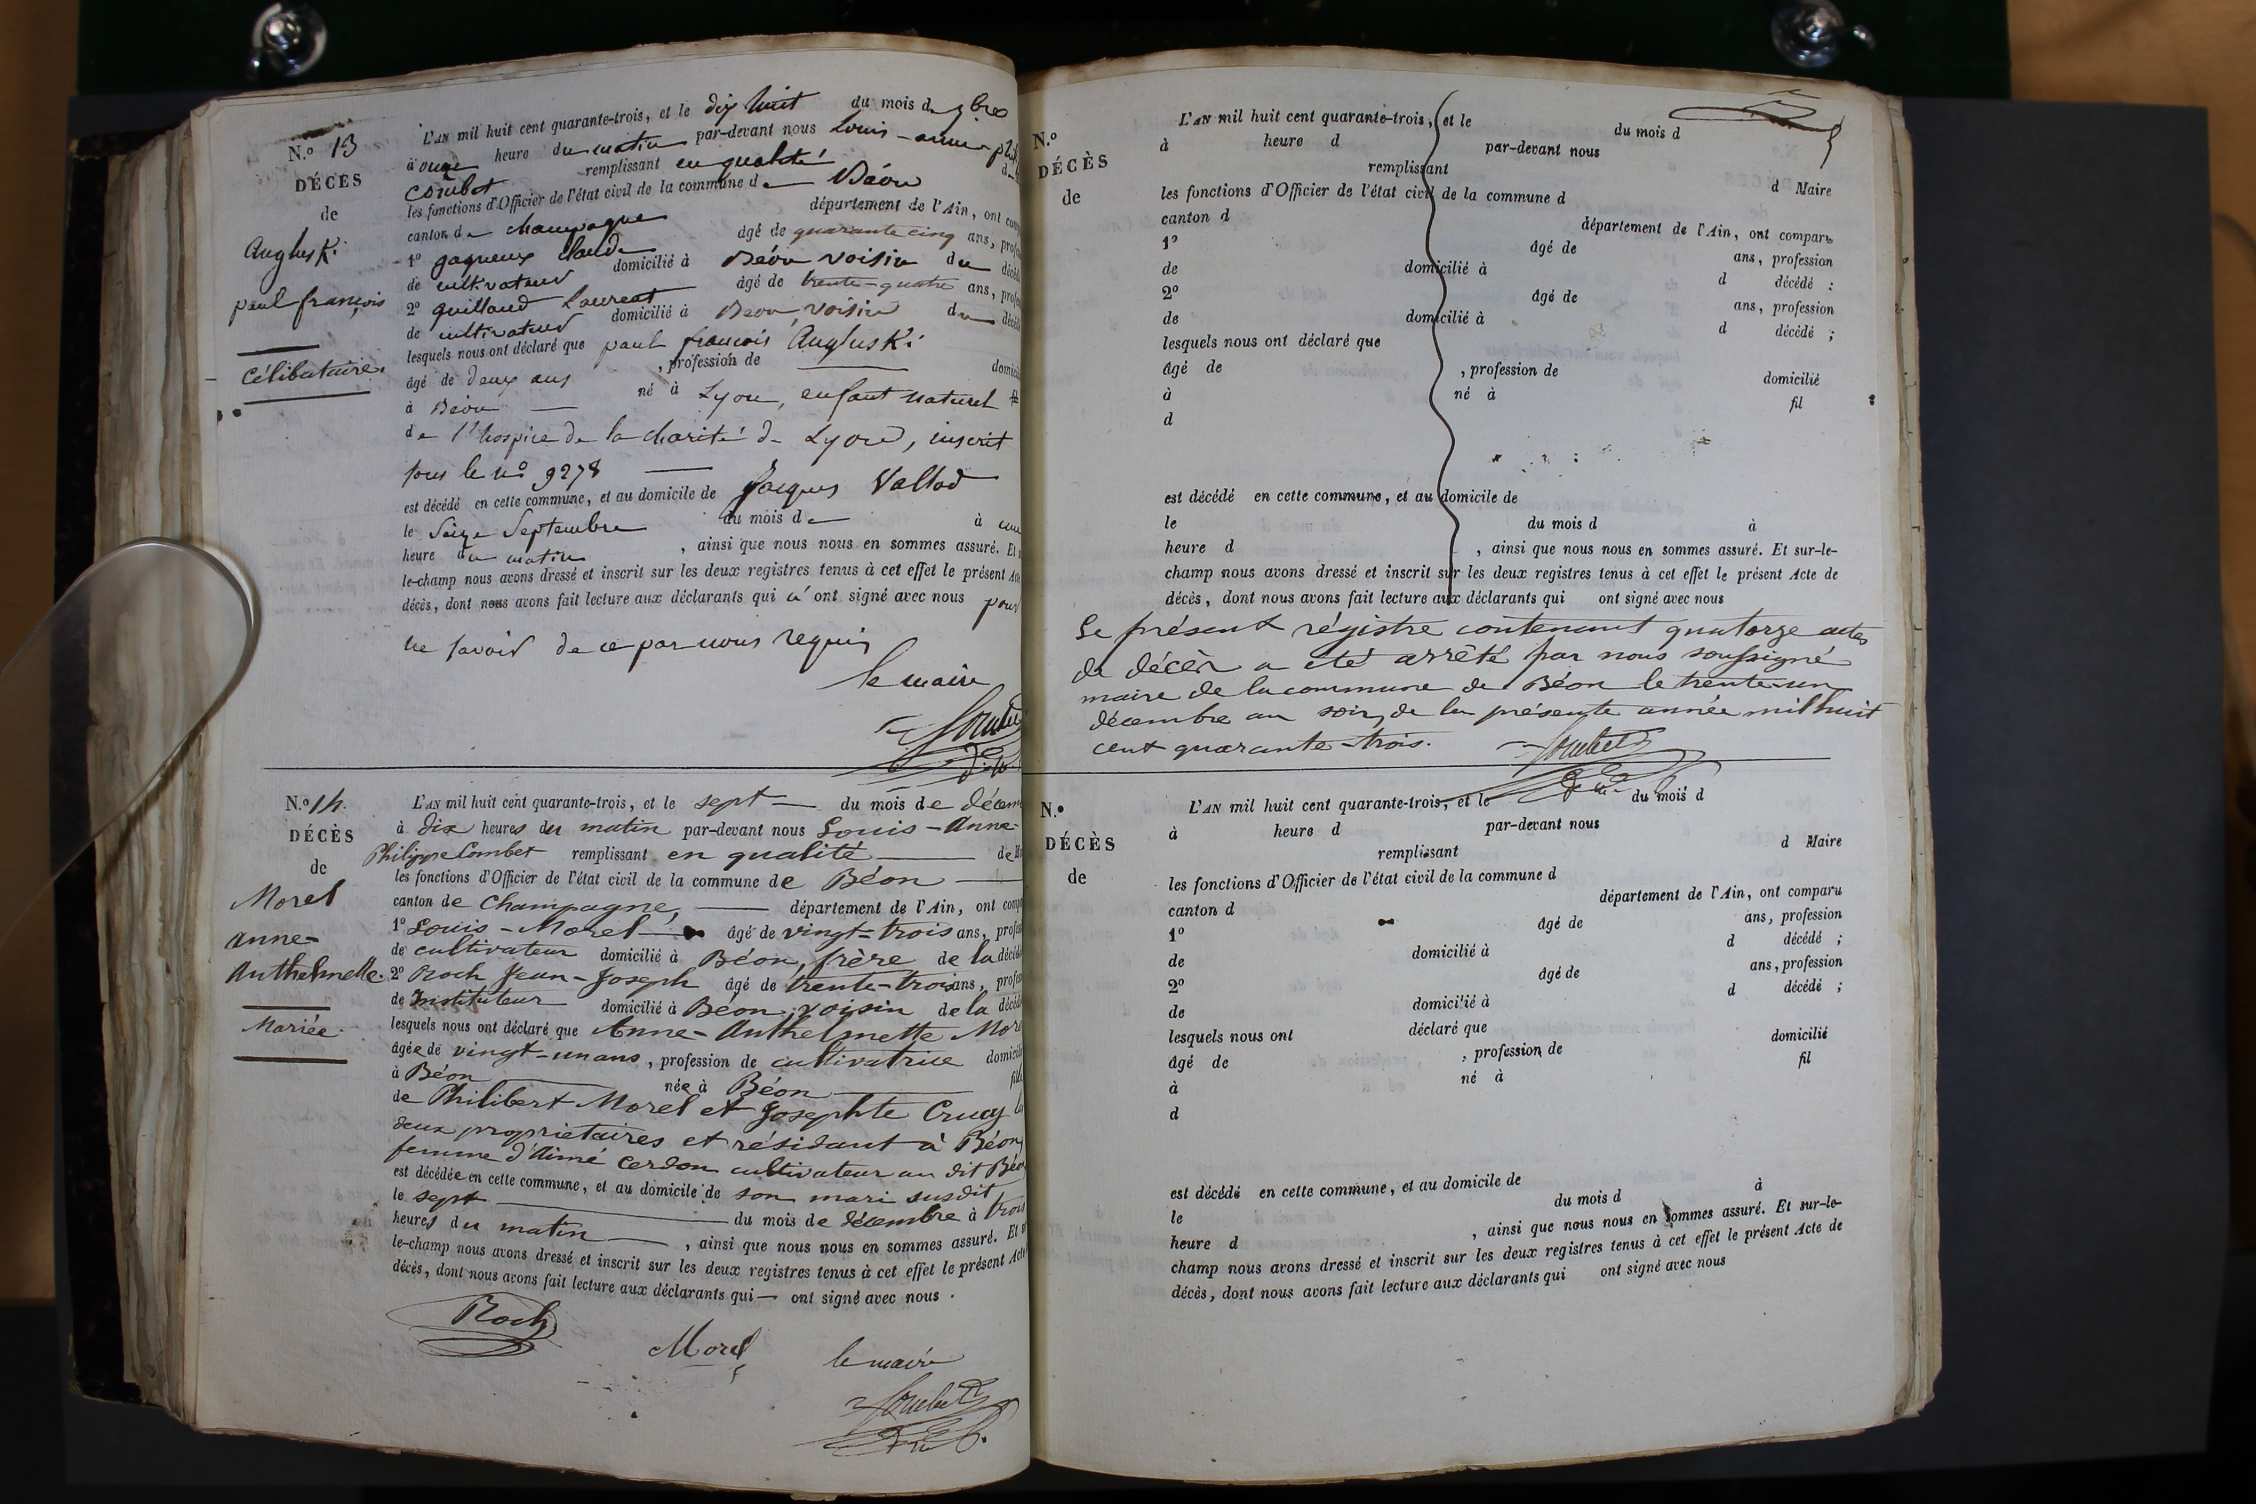 N.º 13
DÉCÈS
de
Angluski
paul françois
Célibataire.
L'AN mil huit cent quarante-trois, et le dix huit du mois de 7bre
à onze heure du matin par-devant nous Louis-anne-
Combet remplissant en qualité
les fonctions d'Officier de l'état civil de la commune de Béon
canton de champagne département de l'Ain, ont
1º gagneux Claude âgé de quarante cinq ans,
de cultivateur domicilié à Béon voisin du
2º guilland Laurent âgé de trente-quatre ans,
de cultivateur domicilié à Béon, voisin du
lesquels nous ont déclaré que paul françois Angluski
âgé de deux ans, profession de
à Béon né à Lyon, enfant naturel
de l'hospice de la charité de Lyon, inscrit
sous le nº 9278
est décédé en cette commune, et au domicile de Jacques Vallod
le Seize Septembre du mois de à
heure du matin, ainsi que nous nous en sommes assuré. Et
le-champ nous avons dressé et inscrit sur les deux registres tenus à cet effet le présent Acte
décès, dont nous avons fait lecture aux déclarants qui ont signé avec nous pour
ne savoir de ce par nous requis
le maire
Combet
N.º 14.
DÉCÈS
de
Morel
anne-
Anthelmette.
Mariée.
L'AN mil huit cent quarante-trois, et le sept du mois de décem
à dix heures du matin par-devant nous Louis-Anne-
Philippe Combet remplissant en qualité de
les fonctions d'Officier de l'état civil de la commune de Béon
canton de Champagne, département de l'Ain, ont
1º Louis-Morel âgé de vingt-trois ans,
de cultivateur domicilié à Béon, frère de la
2º Roch Jean-Joseph âgé de trente-trois ans,
de Instituteur domicilié à Béon, voisin de la
lesquels nous ont déclaré que Anne-Anthelmette
âgée de vingt-un ans, profession de cultivatrice
à Béon née à Béon
de Philibert Morel et Josephte Crucy
deux propriétaires et résidant à Béon,
femme d'Aimé Cerdon cultivateur au dit
est décédée en cette commune, et au domicile de son mari susdit
le sept du mois de décembre à trois
heures du matin, ainsi que nous nous en sommes assuré. Et
le-champ nous avons dressé et inscrit sur les deux registres tenus à cet effet le présent Acte
décès, dont nous avons fait lecture aux déclarants qui ont signé avec nous.
Roch
Morel
le maire
Combet
N.º
DÉCÈS
de
L'AN mil huit cent quarante-trois, et le du mois d
à heure d par-devant nous
remplissant d Maire
les fonctions d'Officier de l'état civil de la commune d
canton d département de l'Ain, ont comparu
1º âgé de ans, profession
de domicilié à d décédé :
2º âgé de ans, profession
de domicilié à d décédé ;
lesquels nous ont déclaré que
âgé de , profession de domicilié
à né à fil
d
est décédé en cette commune, et au domicile de
le du mois d à
heure d , ainsi que nous nous en sommes assuré. Et sur-le-
champ nous avons dressé et inscrit sur les deux registres tenus à cet effet le présent Acte de
décès, dont nous avons fait lecture aux déclarants qui ont signé avec nous
Le présent régistre contenant quatorze actes
de décès a été arrêté par nous soussigné
maire de la commune de Béon le trente-un
décembre au soir, de la présente année mil huit
cent quarante-trois.
Combet
N.º
DÉCÈS
de
L'AN mil huit cent quarante-trois, et le du mois d
à heure d par-devant nous
remplissant d Maire
les fonctions d'Officier de l'état civil de la commune d
canton d département de l'Ain, ont comparu
1º âgé de ans, profession
de domicilié à d décédé ;
2º âgé de ans, profession
de domicilié à d décédé ;
lesquels nous ont déclaré que
âgé de , profession de domicilié
à né à fil
d
est décédé en cette commune, et au domicile de
le du mois d à
heure d , ainsi que nous nous en sommes assuré. Et sur-le-
champ nous avons dressé et inscrit sur les deux registres tenus à cet effet le présent Acte de
décès, dont nous avons fait lecture aux déclarants qui ont signé avec nous